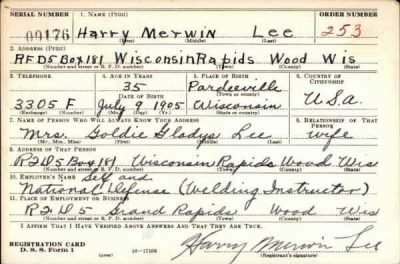 SERIAL NUMBER 1. NAME (Print) ORDER NUMBER
00176 Harry Merwin Lee 253
(First) (Middle) (Last)
2. ADDRESS (Print)
RFD5 Box 181 Wisconsin Rapids Wood Wis
(Number and street or R. F. D. number) (Town) (County) (State)
3. TELEPHONE 4. AGE IN YEARS 5. PLACE OF BIRTH 6. COUNTRY OF CITIZENSHIP
35 Pardeeville
DATE OF BIRTH (Town or county)
3305 F July 9 1905 Wisconsin U.S.A.
(Exchange) (Number) (Mo.) (Day) (Yr.) (State or country)
7. NAME OF PERSON WHO WILL ALWAYS KNOW YOUR ADDRESS 8. RELATIONSHIP OF THAT PERSON
Mrs. Goldie Gladys Lee wife
(Mr., Mrs., Miss) (First) (Middle) (Last)
9. ADDRESS OF THAT PERSON
R#D5 Box 181 Wisconsin Rapids Wood Wis
(Number and street or R. F. D. number) (Town) (County) (State)
10. EMPLOYER'S NAME Self and
National Defense (Welding Instructor)
11. PLACE OF EMPLOYMENT OR BUSINESS
R#D5 Grand Rapids Wood Wis
(Number and street or R. F. D. number) (Town) (County) (State)
I AFFIRM THAT I HAVE VERIFIED ABOVE ANSWERS AND THAT THEY ARE TRUE.
REGISTRATION CARD
D. S. S. Form 1 16—17105 Harry Merwin Lee
(Registrant's signature)